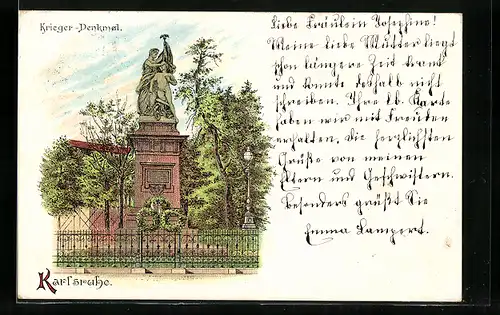 Krieger-Denkmal.
Karlsruhe.
Liebe Fräulein Josephine!
Meine liebe Mutter liegt
schon längere Zeit krank
und konnte deshalb nicht
schreiben. Ihre lb. Karte
haben wir mit Freuden
erhalten. Die herzlichsten
Grüße von meinen
Eltern und Geschwistern.
Besonders grüßt Sie
Emma Lampert.